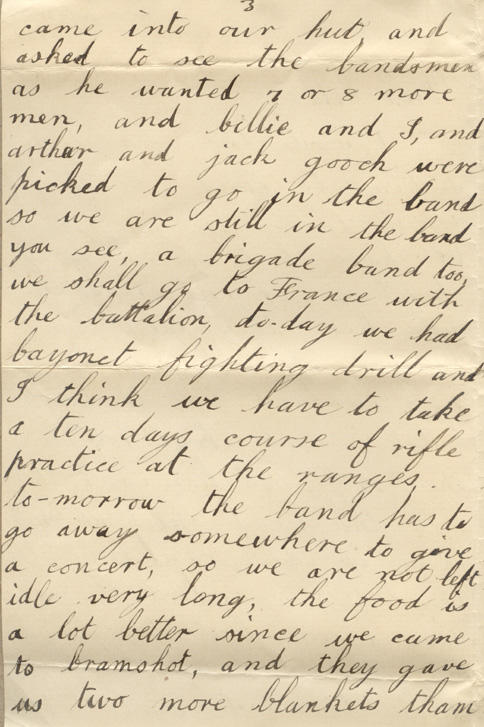 3
came into our hut, and
asked to see the bandsmen
as he wanted 7 or 8 more
men, and billie and I, and
arthur and jack gooch were
picked to go in the band
so we are still in the band
you see, a brigade band too,
we shall go to France with
the battalion, to-day we had
bayonet fighting drill and
I think we have to take
a ten days course of rifle
practice at the ranges.
to-morrow the band has to
go away somewhere to give
a concert, so we are not left
idle very long, the food is
a lot better since we came
to bramshot, and they gave
us two more blankets tham